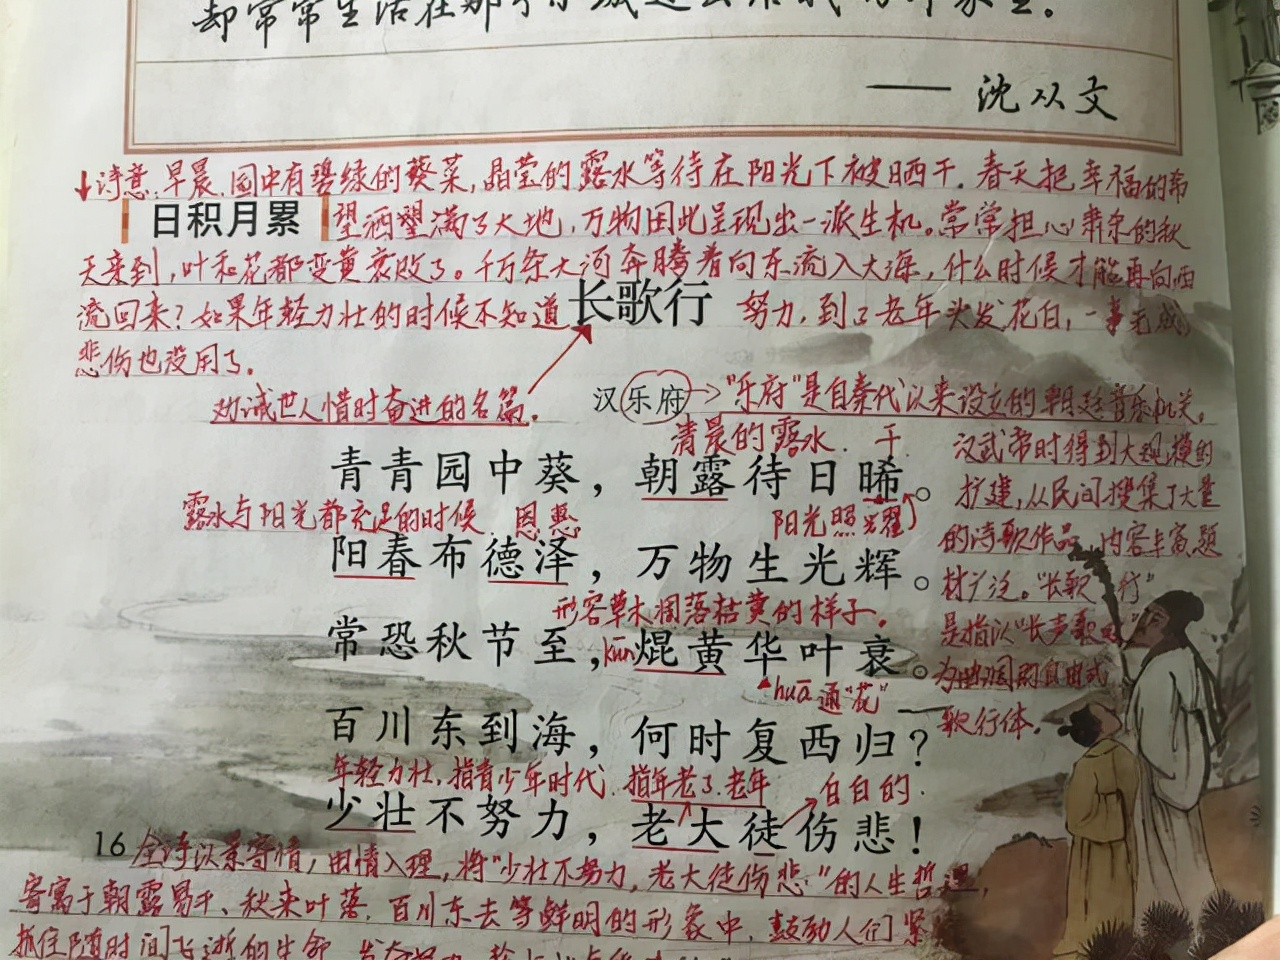 却常常生活在那个小城过去给我的印象里。
—— 沈从文
诗意:早晨,园中有碧绿的葵菜,晶莹的露水等待在阳光下被晒干。春天把幸福的希
日积月累
望洒满了大地,万物因此呈现出一派生机。常常担心肃杀的秋
天来到,叶和花都变黄衰败了。千万条大河奔腾着向东流入大海,什么时候才能再向西
流回来?如果年轻力壮的时候不知道
长歌行
努力,到了老年头发花白,一事无成
悲伤也没用了。
劝诫世人惜时奋进的名篇。
汉乐府
"乐府"是自秦代以来设立的朝廷音乐机关。
清晨的露水. 干.
汉武帝时得到大规模的
青青园中葵,朝露待日晞。
扩建,从民间搜集了大量
露水与阳光都充足的时候 恩惠
阳光照耀
的诗歌作品,内容丰富,题
阳春布德泽,万物生光辉。
材广泛。"长歌行"
形容草木凋落枯黄的样子。
是指以"长声歌
常恐秋节至,焜黄华叶衰。
kūn
为曲调的自由式
huā 通"花"
歌行体。
百川东到海,何时复西归?
年轻力壮,指青少年时代. 指年老了,老年 白白的.
少壮不努力,老大徒伤悲!
16
全诗以景寄情,由情入理,将"少壮不努力,老大徒伤悲"的人生哲理,
寄寓于朝露易干、秋来叶落、百川东去等鲜明的形象中,鼓励人们紧
抓住随时间飞逝的生命